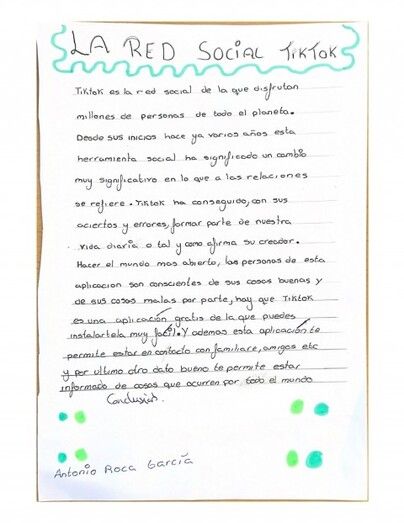 LA RED SOCIAL TIKTOK
TikTok es la red social de la que disfrutan
millones de personas de todo el planeta.
Desde sus inicios hace ya varios años esta
herramienta social ha significado un cambio
muy significativo en lo que a las relaciones
se refiere. TikTok ha conseguido, con sus
aciertos y errores, formar parte de nuestra
vida diaria o tal y como afirma su creador.
Hacer el mundo mas abierto, las personas de esta
aplicacion son conscientes de sus cosas buenas y
de sus cosas malas por parte, hay que TikTok
es una aplicación gratis de la que puedes
instalartela muy fácil. Y ademas esta aplicación te
permite estar en contacto con familiare, amigos etc
y por ultimo otro dato bueno te permite estar
informado de cosas que ocurren por todo el mundo
Conclusión.
Antonio Roca García